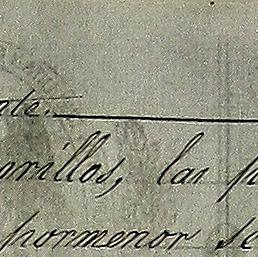 nte.
orillos, las p
pormenor se